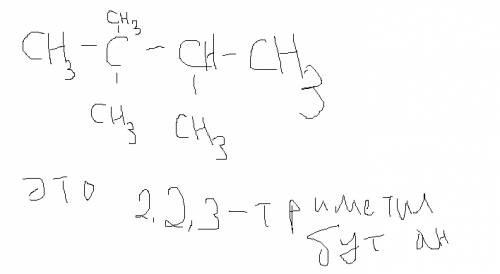 CH3
CH3 - C - CH - CH3
CH3 CH3
это 2,2,3-триметил
бутан